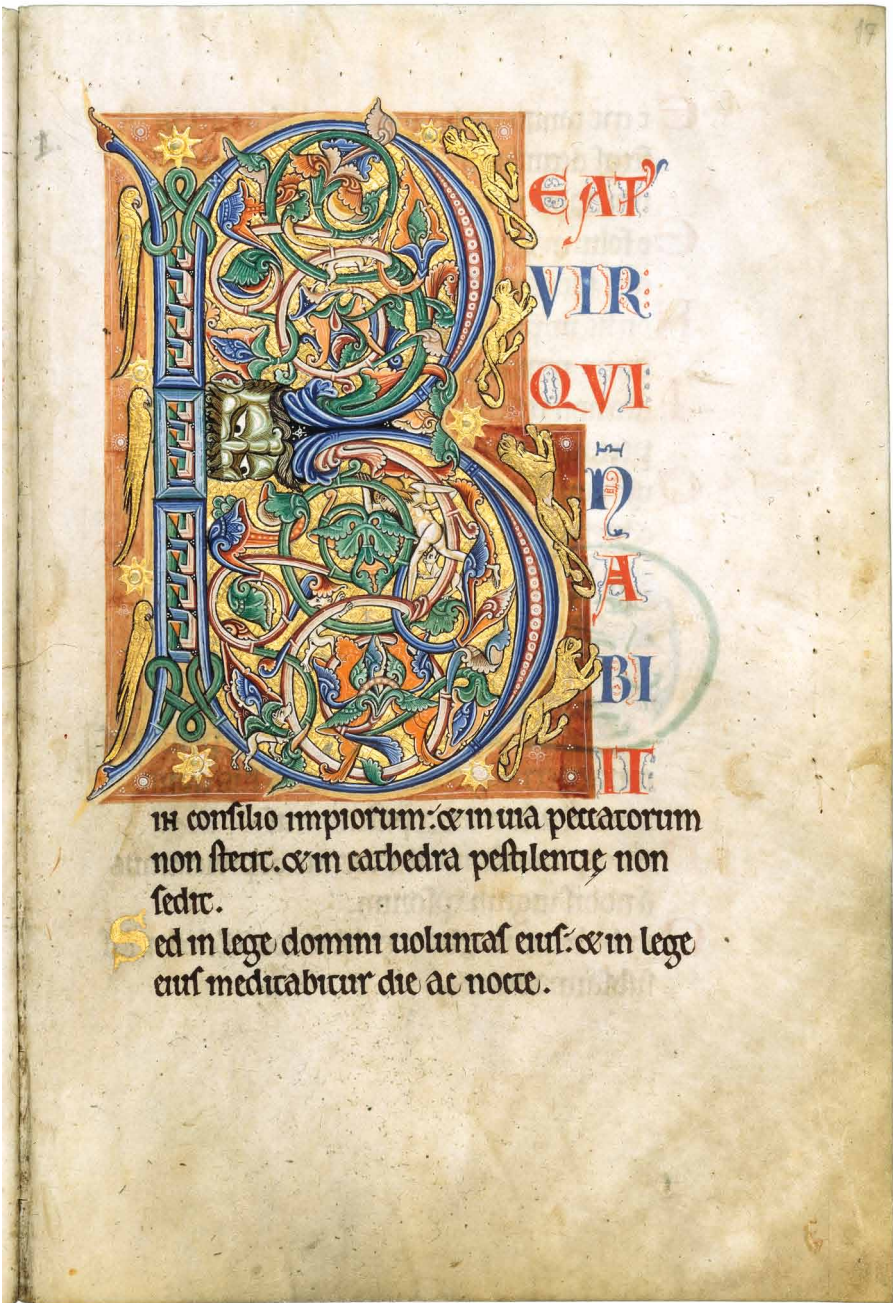 17
1
B
EAT'
VIR
QVI
N̄
A
BI
IT
in consilio impiorum: & in uia peccatorum
non stetit. & in cathedra pestilentię non
sedit.
Sed in lege domini uoluntas eius: & in lege
eius meditabitur die ac nocte.